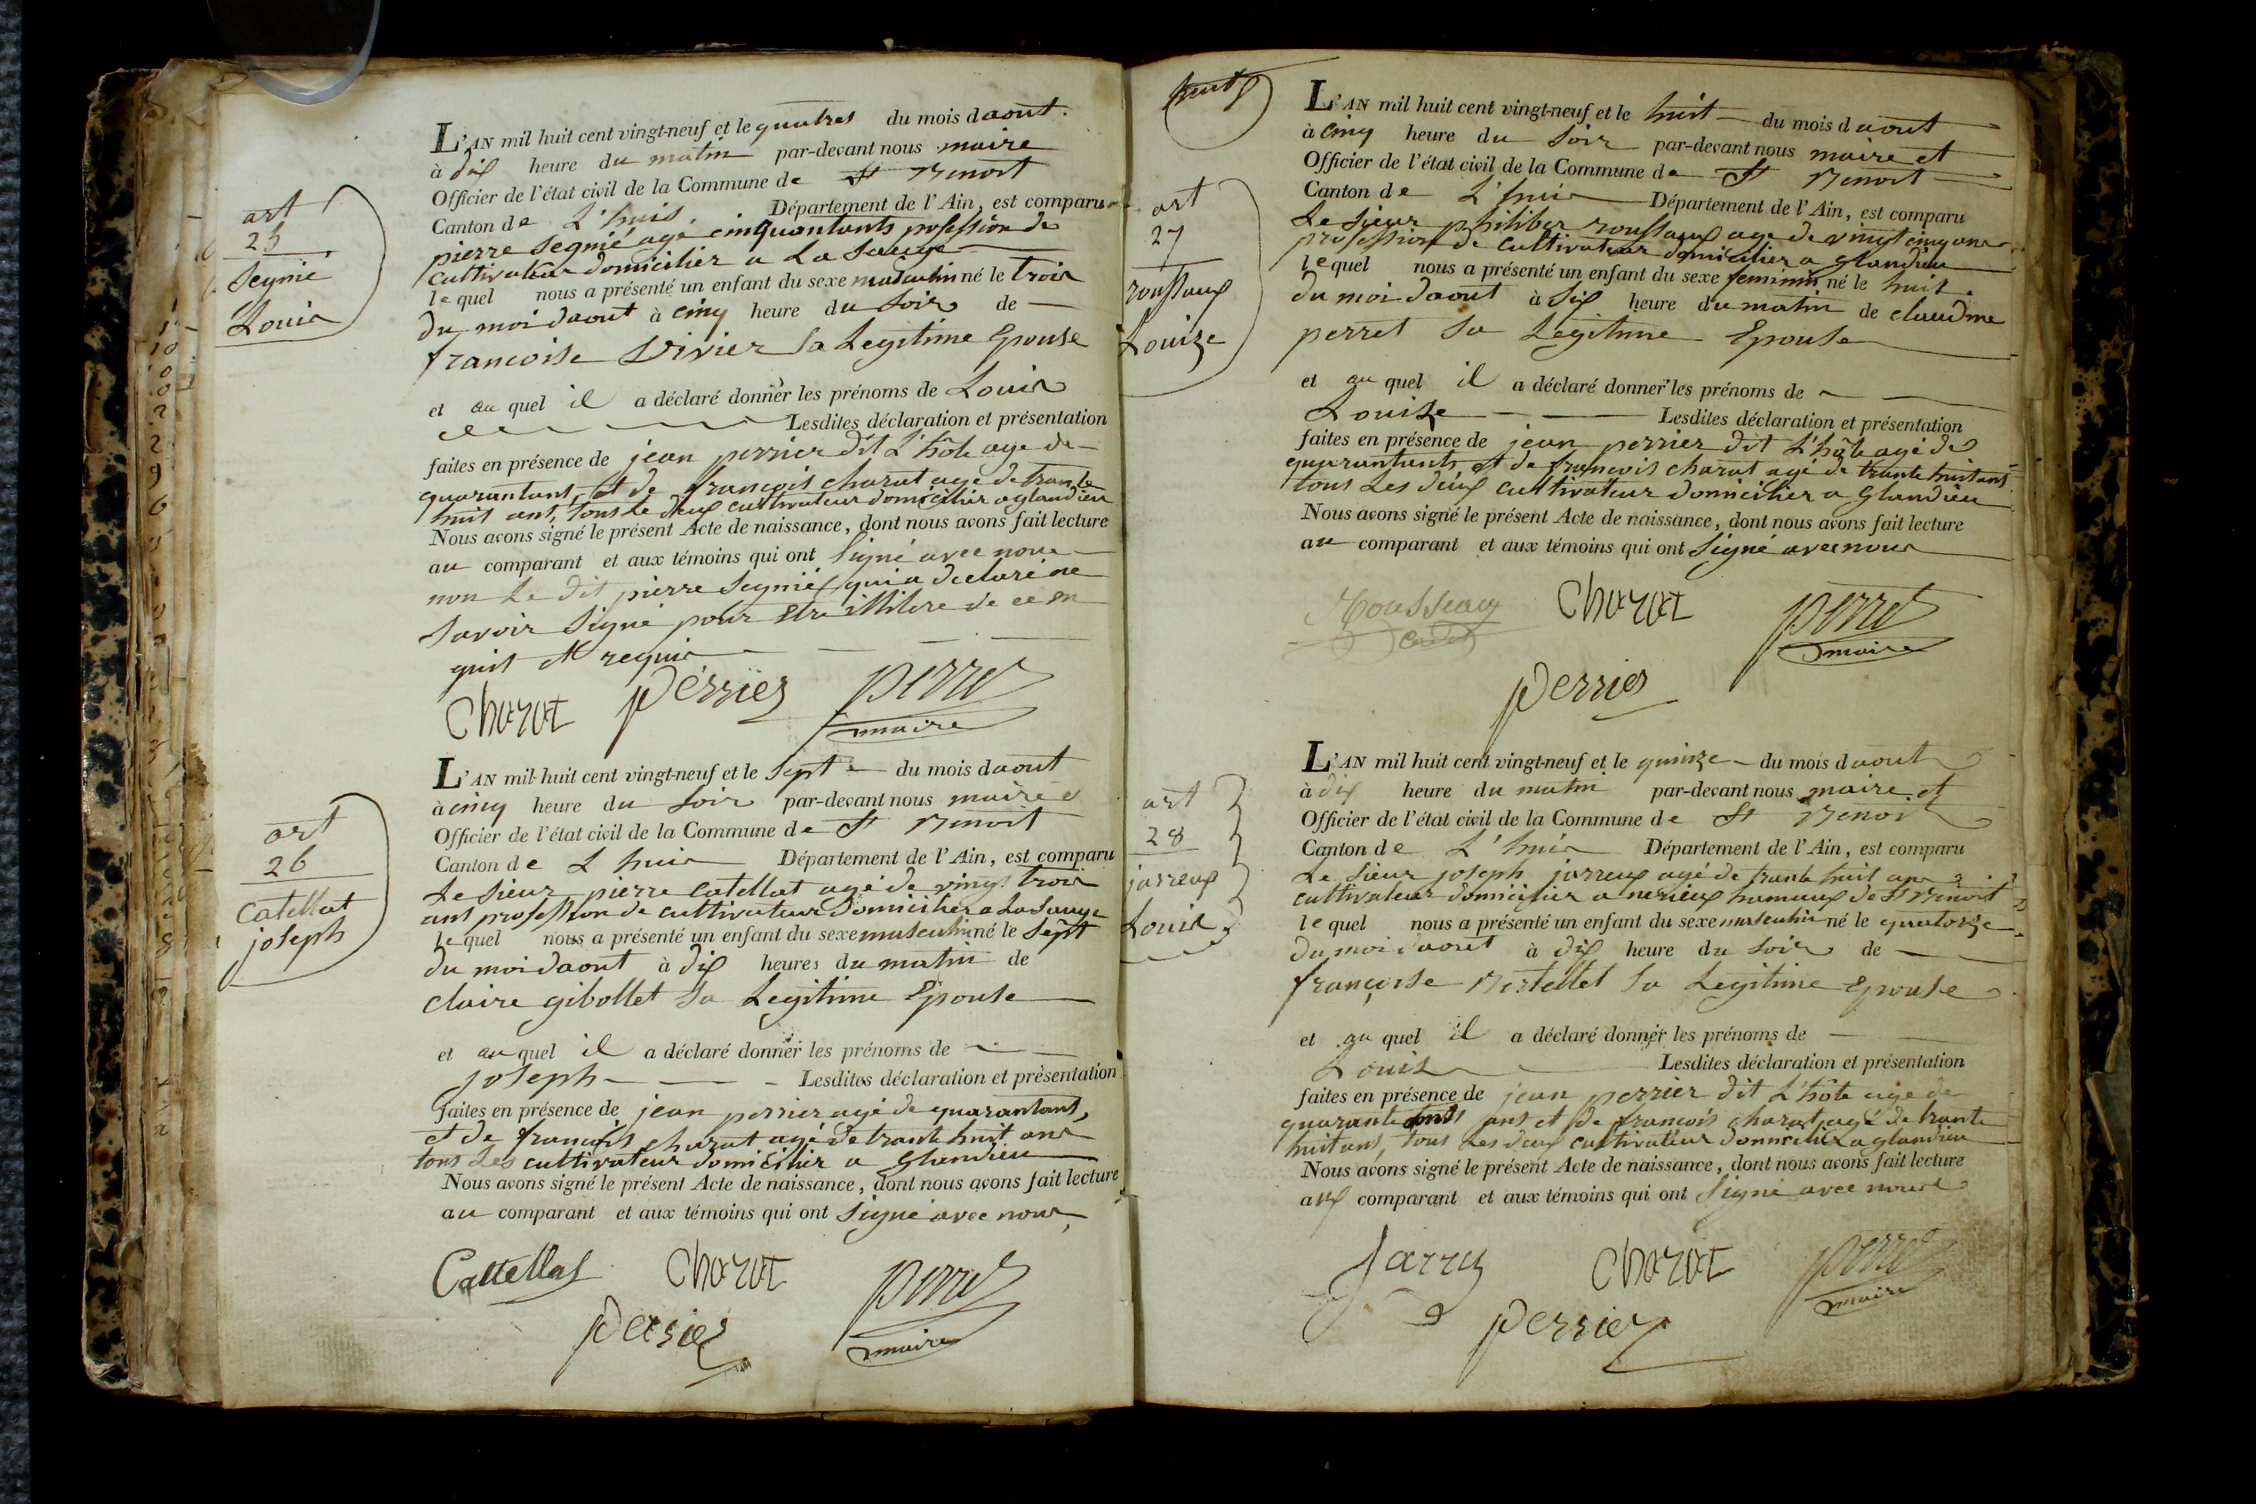 art
25
Segnié
Louis
L'AN mil huit cent vingt-neuf et le quatres du mois daout.
à dix heure du matin par-devant nous maire
Officier de l'état civil de la Commune de St Benoit
Canton de L'huis. Département de l'Ain, est comparu
pierre Segnié agé cinquantants profession de
cultivateur domicilier a La Sauge
lequel nous a présenté un enfant du sexe masculin né le trois
du moi daout à cinq heure du soir de
francoise Vivier Sa Legitime Epouse
et au quel il a déclaré donner les prénoms de Louis
Lesdites déclaration et présentation
faites en présence de jean perrier dit L'hôte age de
quarantans, et de françois charat agé de trante
huit ant, tous Le deux cultivateur domicilier a glandieu
Nous avons signé le présent Acte de naissance, dont nous avons fait lecture
au comparant et aux témoins qui ont Signé avec nous
non Le dit pierre Segnié qui a declaré ne
Savoir Signé pour Etre illitere de ce en
quit et requis
Charat perrier perret
maire
art
26
Catellat
joseph
L'AN mil huit cent vingt-neuf et le Sept du mois daout
à cinq heure du Soir par-devant nous maire et
Officier de l'état civil de la Commune de St Benoit
Canton de L huis Département de l'Ain, est comparu
Le Sieur pierre Catellat agé de vingt trois
ant profession de cultivateur Domicilier a La Sauge
lequel nous a présenté un enfant du sexe masculin né le Sept
du moi daout à dix heures du matin de
Claire gibollet Sa Legitime Epouse
et au quel il a déclaré donner les prénoms de
joseph Lesdites déclaration et présentation
faites en présence de jean perrier agé de quarantans,
et de françois charat agé de trante huit ans
tous Les cultivateur domicilier a Glandieu
Nous avons signé le présent Acte de naissance, dont nous avons fait lecture
au comparant et aux témoins qui ont Signé avec nous
Cattellat Charat perret
perrier maire
art
27
roussaux
Louize
L'AN mil huit cent vingt-neuf et le huit du mois daout
à cinq heure du Soir par-devant nous maire et
Officier de l'état civil de la Commune de St Benoit
Canton de L'huis Département de l'Ain, est comparu
Le Sieur philiber roussaux age de vingt cinq ans
profession de cultivateur domicilier a glandieu
lequel nous a présenté un enfant du sexe feminin né le huit
du moi daout à Six heure du matin de claudine
perret Sa Legitime Epouse
et au quel il a déclaré donner les prénoms de
Louize Lesdites déclaration et présentation
faites en présence de jean perrier dit L'hôte agé de
quarantants et de françois charat agé de trante huit ant
tous Les deux cultivateur domicilier a Glandieu
Nous avons signé le présent Acte de naissance, dont nous avons fait lecture
au comparant et aux témoins qui ont Signé avec nous
Rousseau Charat perret
maire
perrier
art
28
jarreux
Louis
L'AN mil huit cent vingt-neuf et le quinze du mois daout
à dix heure du matin par-devant nous maire et
Officier de l'état civil de la Commune de St Benoit
Canton de L'huis Département de l'Ain, est comparu
Le Sieur joseph jarreux agé de trante huit ans
cultivateur domicilier a nerieux hameux de St Benoit
lequel nous a présenté un enfant du sexe masculin né le quatorze
du moi daout à dix heure du Soir de
françoise Bertellet Sa Legitime Epouse
et au quel il a déclaré donner les prénoms de
Louis Lesdites déclaration et présentation
faites en présence de jean perrier dit L'hôte age de
quarante ans et de françois charat agé de trante
huit ans, tous Les deux cultivateur domicilier a glandieu
Nous avons signé le présent Acte de naissance, dont nous avons fait lecture
aux comparant et aux témoins qui ont Signé avec nous
Charat perret
perrier maire